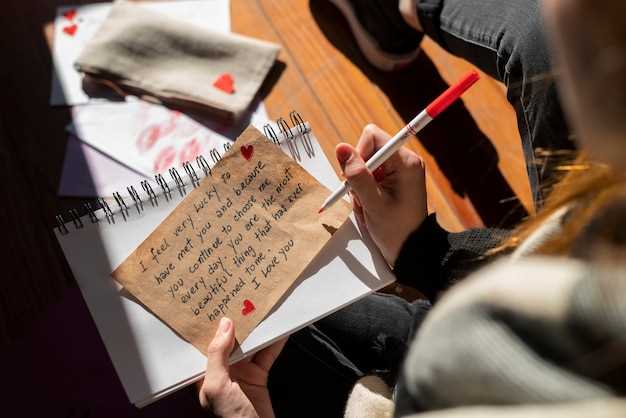 I feel very lucky to
have met you and because
you continue to choose me
every day. you are the most
beautiful thing that has ever
happened to me.
I love you